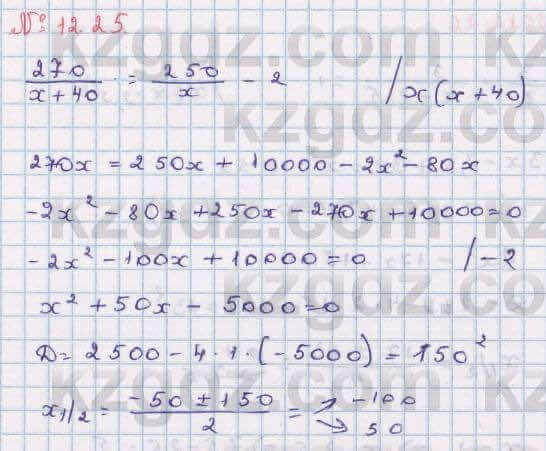 № 12.25.
270/(x+40) = 250/x - 2 /x(x+40)
270x = 250x + 10000 - 2x² - 80x
-2x² - 80x + 250x - 270x + 10000 = 0
-2x² - 100x + 10000 = 0 /-2
x² + 50x - 5000 = 0
D = 2500 - 4·1·(-5000) = 150²
x1/2 = (-50 ± 150)/2 = → -100
→ 50
kzgdz.com